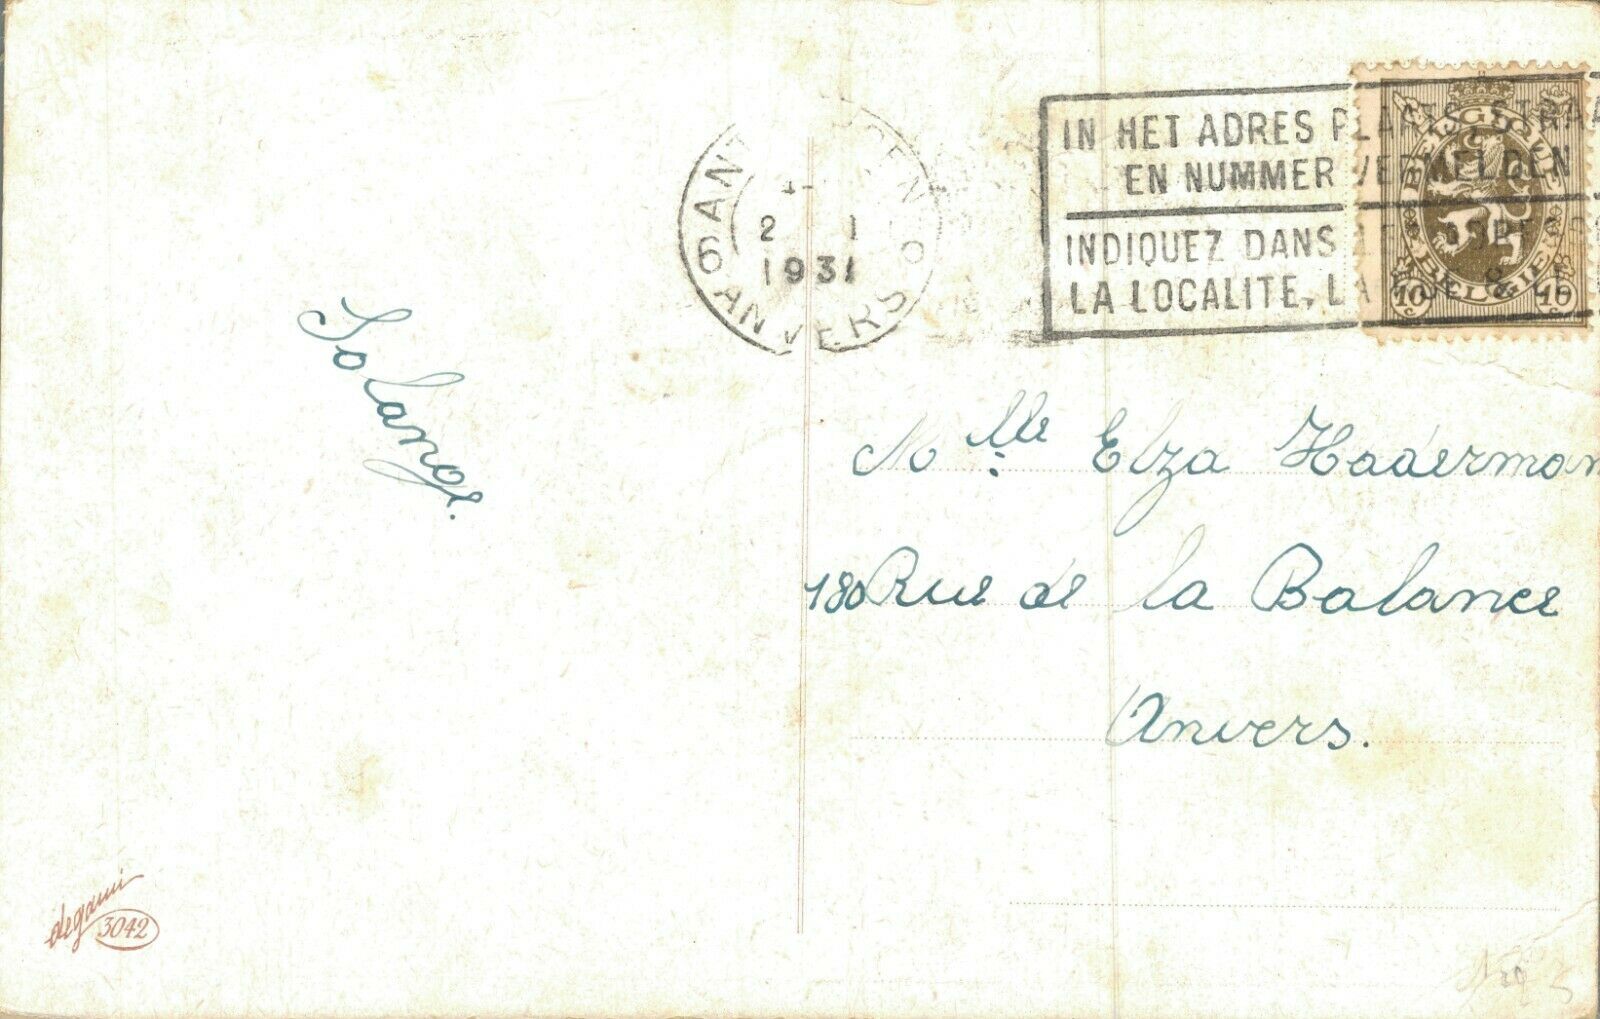 ANTWERPEN
6 ANVERS 6
2 1
1931
IN HET ADRES PLAATS, STRAA
EN NUMMER VERMELDEN
INDIQUEZ DANS L'ADRESSE
LA LOCALITE, LA RUE & LE
BELGIQUE BELGIË
10c 10c
Solange.
Mlle Elza Haaerman
180 Rue de la Balance
Anvers.
degami
3042